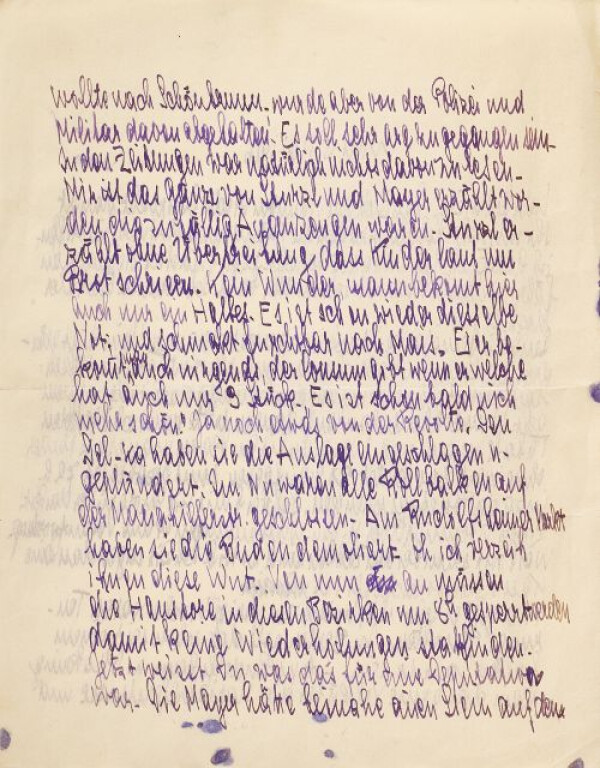 wollte nach Schönbrunn. wurde aber von der Polizei und
Militär davon abgehalten. Es soll sehr arg zugegangen sein.
In den Zeitungen war natürlich nichts davon zu lesen.
Mir ist das Ganze von Stenzl und Mayer erzählt wor-
den die zufällig Augenzeugen waren. Stenzl er-
zählt ohne Übertreibung dass Kinder laut um
Brot schreien. Kein Wunder man bekommt hier
auch nur ein Halbes. Es ist schon wieder dieselbe
Not und schmeckt furchtbar nach Mais. Eier be-
kommt auch nirgends der Consum gibt wenn er welche
hat auch nur 9 Stück. Es ist schon bald nich
mehr schön! Da noch eins von der Revolte. Den
haben sie die Auslage eingeschlagen u.
geplündert. Im waren alle Rollbalken auf
der Mariahilferstr. geschlossen. Am Rudolfsheimer Markt
haben sie die Buden demoliert. Oh, ich verzeih
ihnen diese Wut. Von nun an müssen
die Haustore in diesen Bezirken um 8h gesperrt werden
damit keine Wiederholungen stattfinden.
Jetzt weisst Du was das für eine
war. Die Mayer hätte beinahe einen Stein auf den